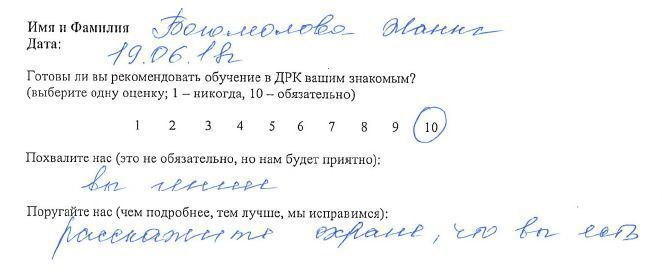 Имя и Фамилия Богомолова Жанна
Дата: 19.06.18г
Готовы ли вы рекомендовать обучение в ДРК вашим знакомым?
(выберите одну оценку; 1 – никогда, 10 – обязательно)
1 2 3 4 5 6 7 8 9 10
Похвалите нас (это не обязательно, но нам будет приятно):
вы
Поругайте нас (чем подробнее, тем лучше, мы исправимся):
расскажите охране, что вы есть